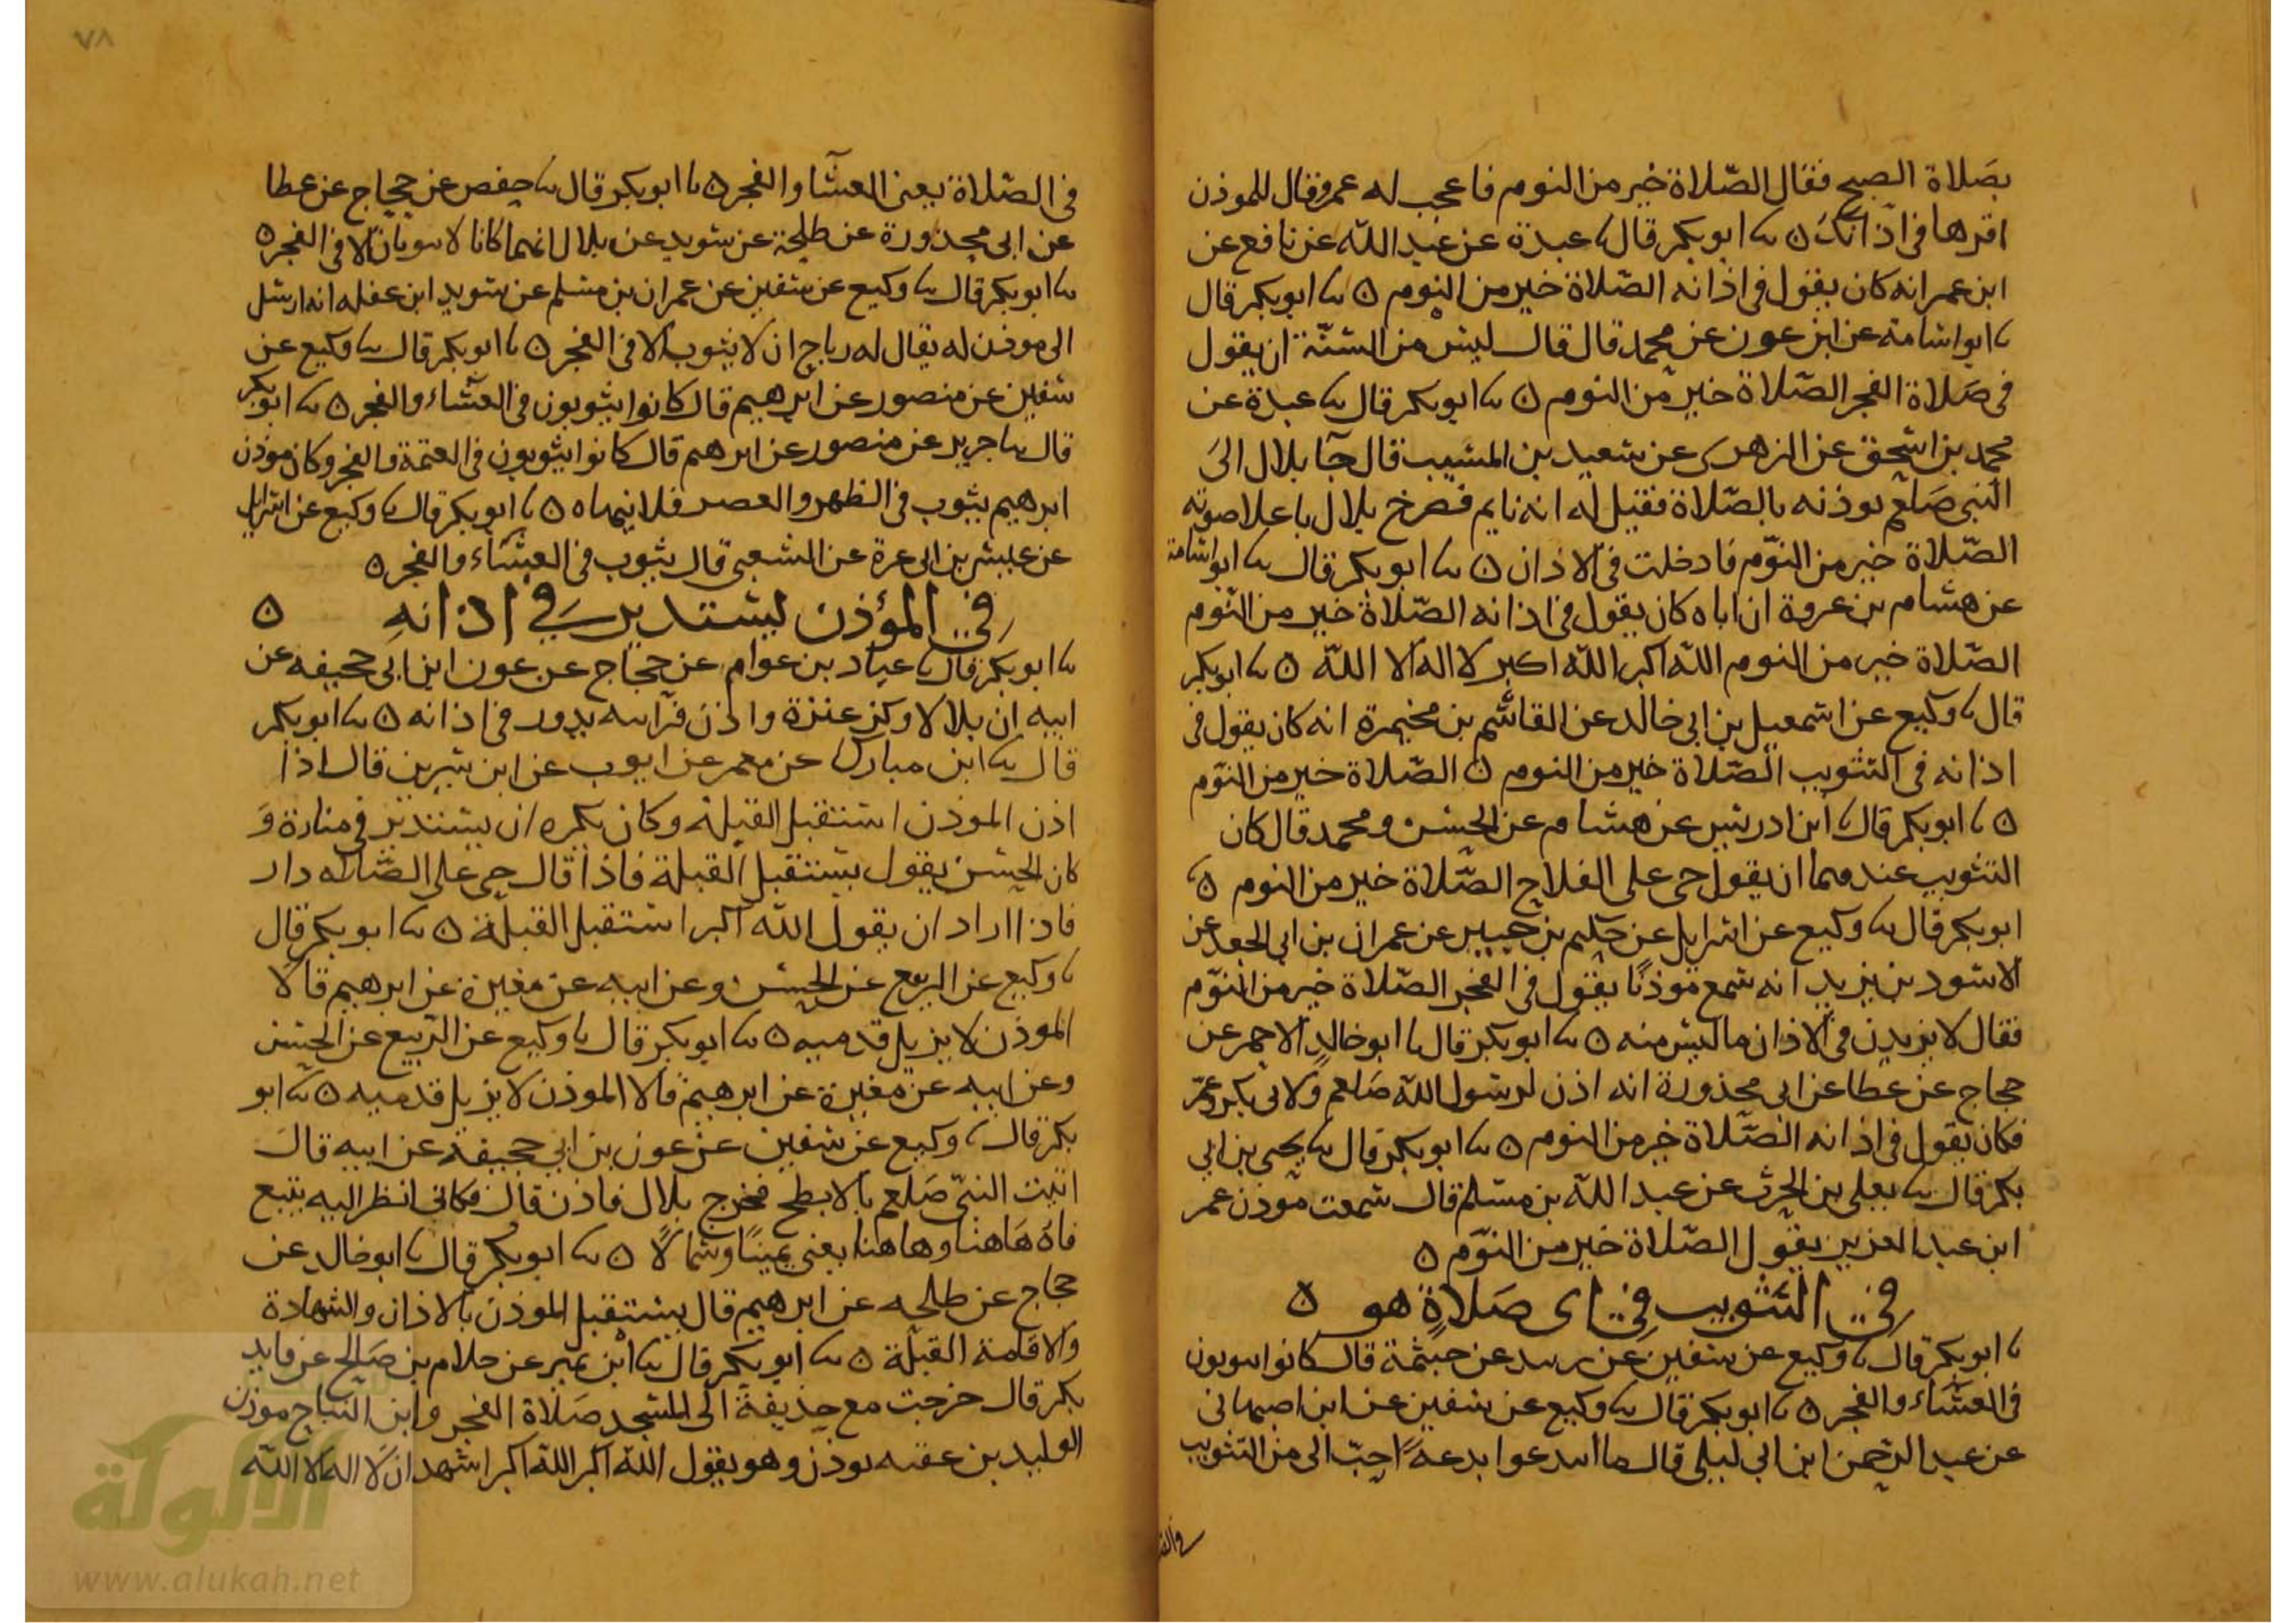 بصَلاة الصبح فقال الصّلاة خير من النوم فاعجب له عمر وقال للموذن
اقرها في اذانك ۵ ىا ابو بكر قال ىا عبدة عن عبيد الله عن نافع عن
ابن عمر انه كان يقول في اذانه الصّلاة خير من النوم ۵ ىا ابو بكر قال
ىا ابو اسامة عن ابن عون عن محمد قال قال ليس من السنّة ان يقول
في صَلاة الفجر الصّلاة خير من النوم ۵ ىا ابو بكر قال ىا عبدة عن
محمد بن اسحق عن الزهرى عن سعيد بن المسيب قال جآ بلال الى
النبى صَلعم يوذنه بالصّلاة فقيل له انه نايم فصرخ بلال باعلا صوته
الصّلاة خير من النوّم فادخلت في الاذان ۵ ىا ابو بكر قال ىا ابو اسامة
عن هشام بن عروة ان اباه كان يقول في اذانه الصّلاة خير من النوم
الصّلاة خير من النوم الله اكبر الله اكبر لا اله الا الله ۵ ىا ابو بكر
قال ىا وكيع عن اسمعيل بن ابى خالد عن القاسم بن مخيمرة انه كان يقول في
اذانه في التثويب الصّلاة خير من النوم ۵ الصّلاة خير من النوّم
۵ ىا ابو بكر قال ىا ابن ادريس عن هشام عن الحسن ومحمد قال كان
التثويب عندهما ان يقول حى على الفلاح الصّلاة خير من النوم ۵ ىا
ابو بكر قال ىا وكيع عن اسرايل عن حكيم بن جبير عن عمران بن ابى الجعد عن
الاسود بن يزيد انه سمع موذنًا يقول في الفجر الصّلاة خير من النوّم
فقال لا يزيدن في الاذان ما ليس منه ۵ ىا ابو بكر قال ىا ابو خالد الاحمر عن
حجاج عن عطا عن ابى محذورة انه اذن لرسول الله صَلعم ولابى بكر وعمر
فكان يقول في اذانه الصّلاة خير من النوم ۵ ىا ابو بكر قال ىا يحيى بن ابى
بكر قال ىا يعلى بن الحرث عن عبد الله بن مسلم قال سمعت موذن عمر
ابن عبد العزيز يقول الصّلاة خير من النوّم ۵
في التثويب في اى صَلاةٍ هو ۵
ىا ابو بكر قال ىا وكيع عن سفين عن عن خيثمة قال كانوا ىىوىون
في العشَاء والفجر ۵ ىا ابو بكر قال ىا وكيع عن سفين عن ابن اصبهانى
عن عبد الرحمن ابن ابى ليلى قال ما ابتدعوا بدعةً احبّ الى من التثويب
في الصّلاة يعنى العشَا والفجر ۵ ىا ابو بكر قال ىا حفص عن حجاج عن عطا
عن ابى محذورة عن طلحة عن سويد عن بلال انهما كانا لا ىىوبان الا في الفجر ۵
ىا ابو بكر قال ىا وكيع عن سفين عن عمران بن مسلم عن سويد ابن عفله انه ارسل
الى موذن له يقال له رباح ان لا يثوب الا في الفجر ۵ ىا ابو بكر قال ىا وكيع عن
سفين عن منصور عن ابرهيم قال كانوا يثوبون في العشاء والفجر ۵ ىا ابو بكر
قال ىا جرير عن منصور عن ابرهيم قال كانوا يثوبون في العتمة والفجر وكان موذن
ابرهيم يثوب في الظهر والعصر فلا ينهاه ۵ ىا ابو بكر قال ىا وكيع عن اسرايل
عن عيسى بن ابى عزة عن الشعبى قال يثوب في العشَاء والفجر ۵
في المؤذن يستدير في اذانهِ ۵
ىا ابو بكر قال ىا عباد بن عوام عن حجاج عن عون ابن ابى جحيفه عن
ابيه ان بلالا ركز عنزة واذن فرايته يدور في اذانه ۵ ىا ابو بكر
قال ىا ابن مبارك عن معمر عن ايوب عن ابن سيرين قال اذا
اذن الموذن استقبل القبلة وكان يكره ان يستدير في منارة وَ
كان الحسن يقول يستقبل القبلة فاذا قال حى على الصّلاه دار
فاذا اراد ان يقول الله اكبر استقبل القبلة ۵ ىا ابو بكر قال
ىا وكيع عن الربيع عن الحسن وعن ابيه عن مغيرة عن ابرهيم قالا
الموذن لا يزيل قدميه ۵ ىا ابو بكر قال ىا وكيع عن الرّبيع عن الحسن
وعن ابيه عن مغيرة عن ابرهيم قالا الموذن لا يزيل قدميه ۵ ىا ابو
بكر قال ىا وكيع عن سفين عن عون بن ابى جحيفة عن ابيه قال
اتيت النبىّ صَلعم بالابطح فخرج بلال فاذن قال فكانى انظر اليه يتبع
فاهُ هَاهنا وهاهنا يعنى يمينًا وشمالًا ۵ ىا ابو بكر قال ىا ابو خالد عن
حجاج عن طلحه عن ابرهيم قال يستقبل الموذن بالاذان والشهادة
والاقامة القبلة ۵ ىا ابو بكر قال ىا ابن نمير عن حلام بن صَالح عن فايد
بكر قال خرجت مع حذيفة الى المسجد صَلاة الفجر وابن التياح موذن
الوليد بن عقبه يوذن وهو يقول الله اكبر الله اكبر اشهد ان لا اله الا الله
٧٨
الألوكة
www.alukah.net